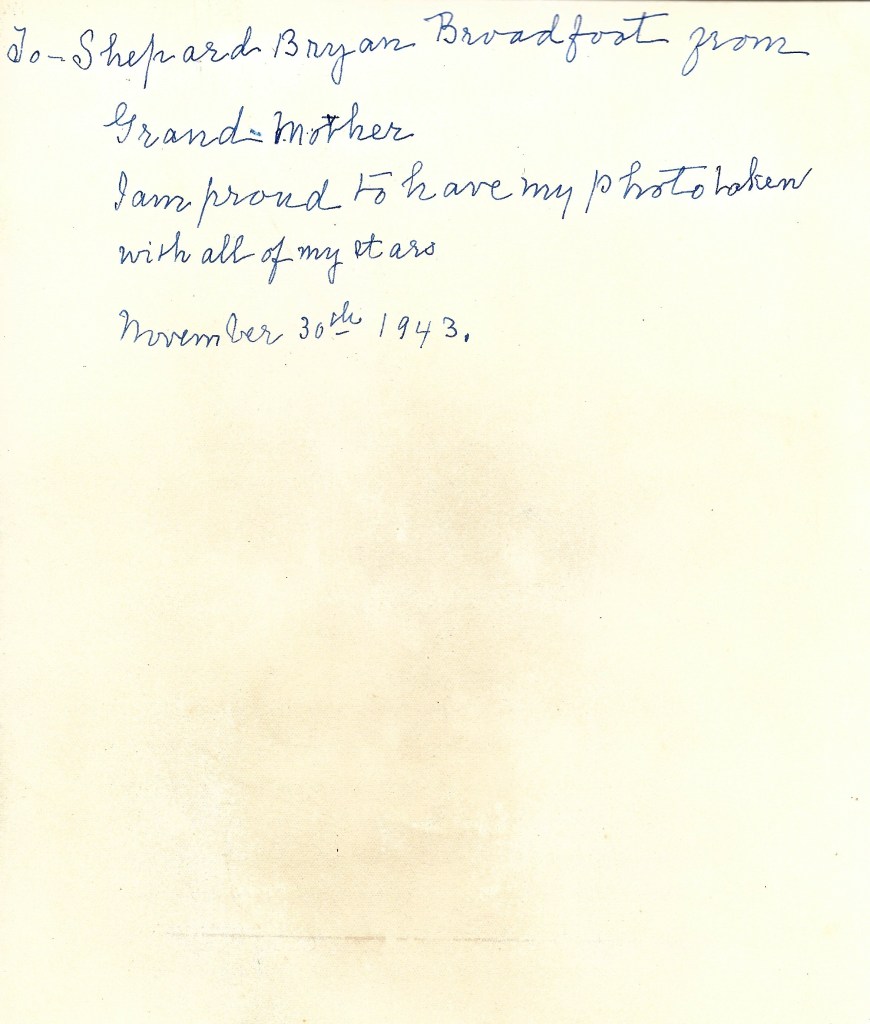 To- Shepard Bryan Broadfoot from
Grand-Mother
I am proud to have my photo taken
with all of my stars
November 30th 1943.